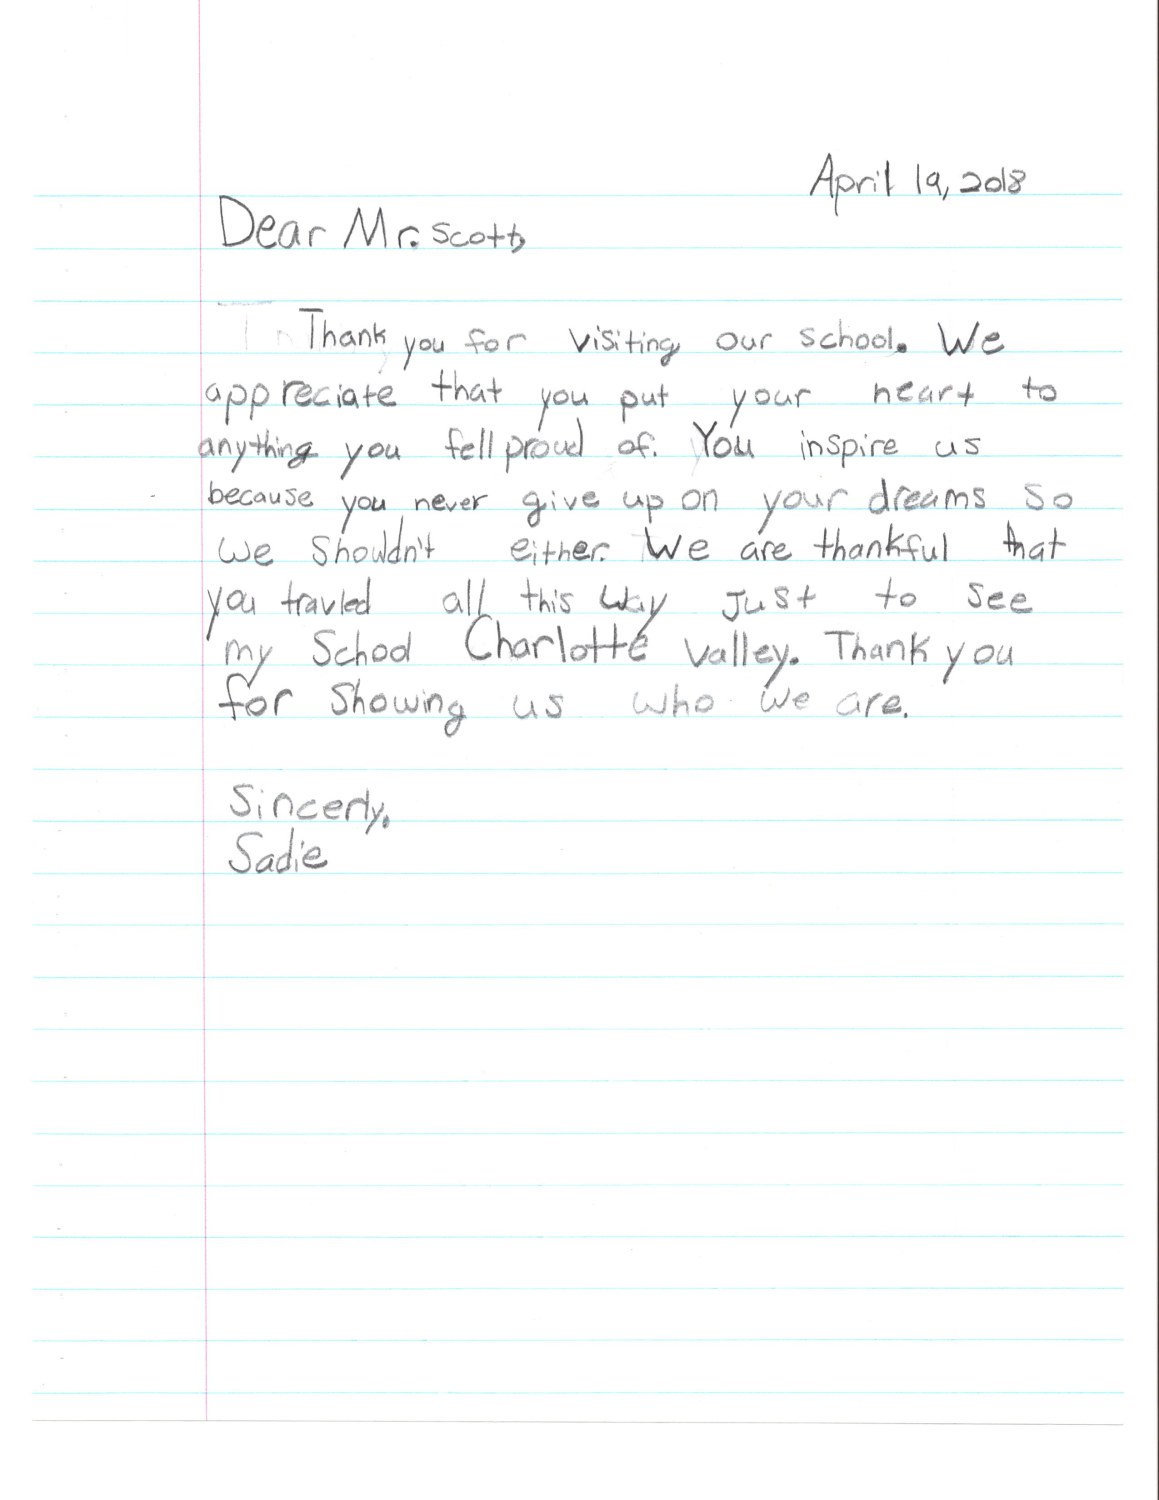 April 19, 2018
Dear Mr. Scott,
Thank you for visiting our school. We
appreciate that you put your heart to
anything you fell proud of. You inspire us
because you never give up on your dreams so
we shouldn't either. We are thankful that
you travled all this way just to see
my School Charlotte valley. Thank you
for showing us who we are.
Sincerly,
Sadie